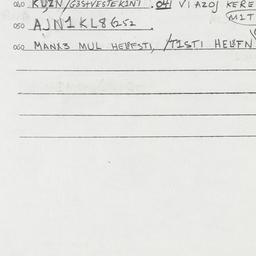 040 KUZN/G3STVESTEKINI .04 VI AZOJ KERE
MIT
050 AJN1KL86252
060 MANX3 MUL HELFSTI, /TISTI HELFN